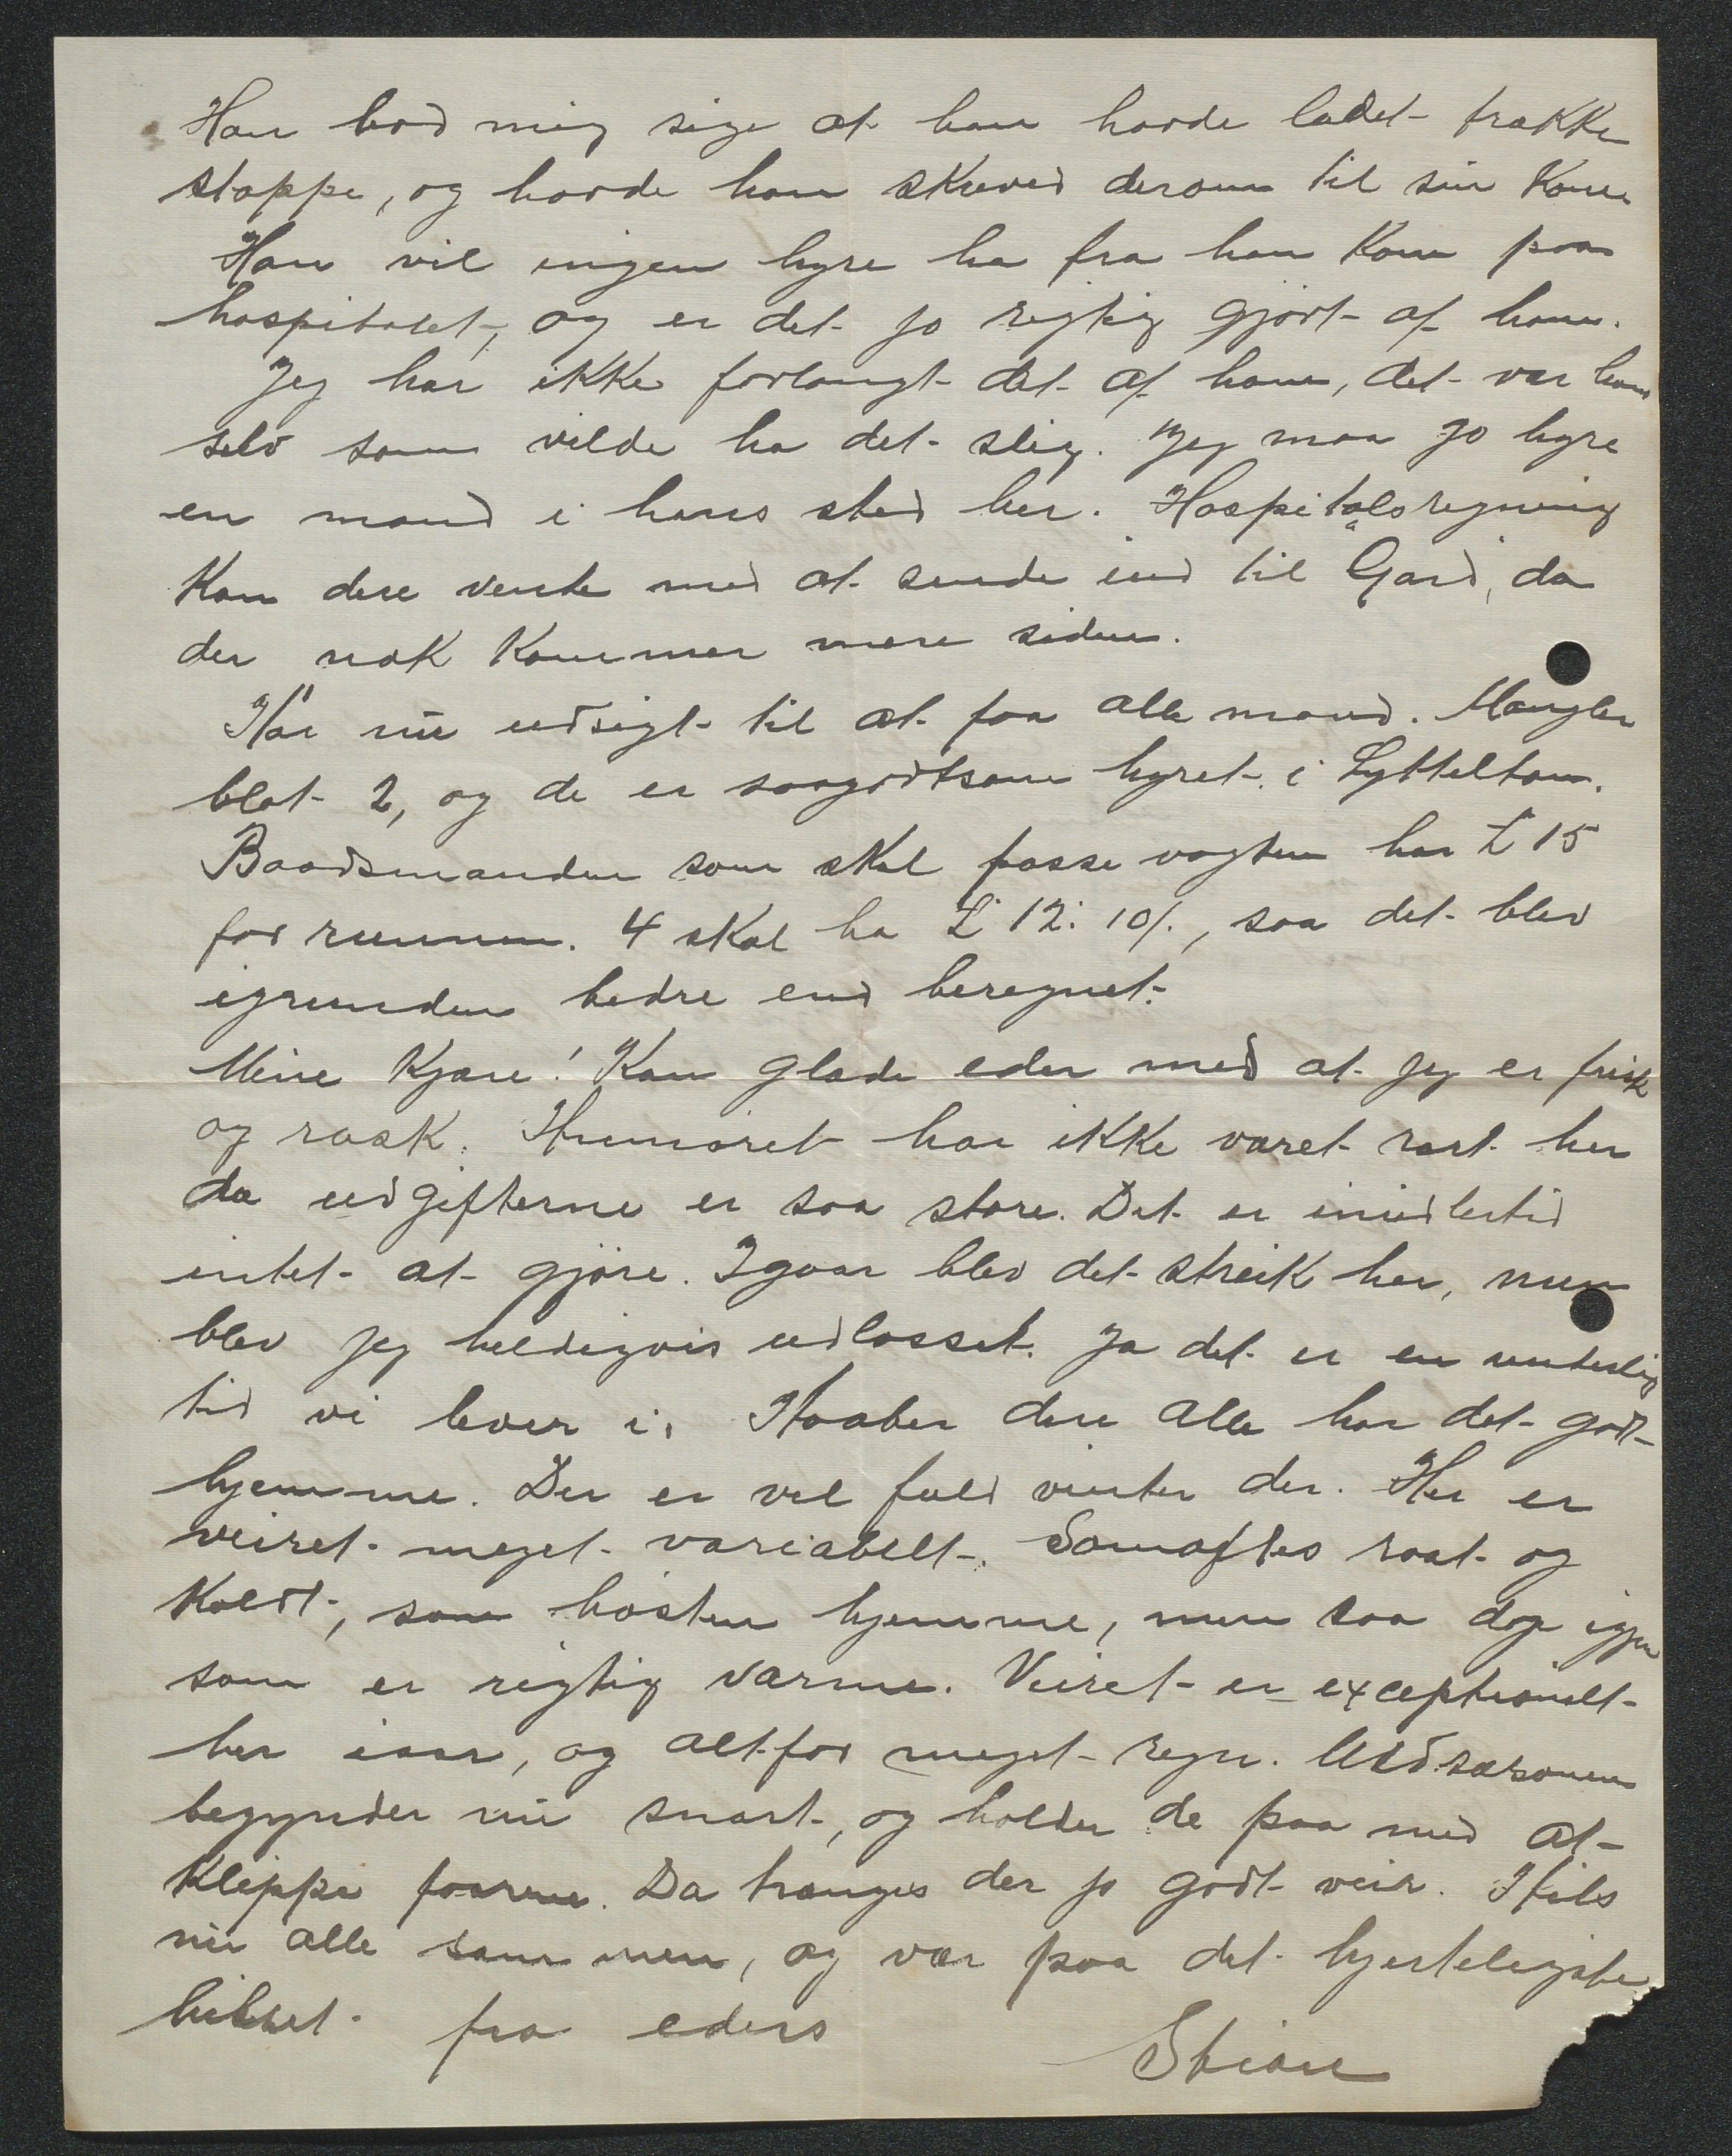 Han bød mig sige at han havde ladet trække
stoppe, og havde han skreved derom til sin Kone
Han vil ingen hyre ha fra han Kom paa
hospitalet, og er det jo rigtig gjørt af ham.
Jeg har ikke forlangt det af ham, det var ham
selv som vilde ha det slig. Jeg maa jo hyre
en mand i hans sted her. Hospitalsregning
Kan dere vente med at sende ind til "Gard", da
der nok Kommer mere siden.
Har nu udsigt til at faa alle mand. Mangler
blot 2, og de er saagodtsom hyret i Lyttelton.
Baadsmanden som skal passe vagten har £ 15
for runnen. 4 skal ha £ 12: 10/., saa det blev
igrunden bedre end beregnet.
Mine Kjære! Kan glæde eder med at jeg er frisk
og rask. Humøret har ikke været rart her
da udgifterne er saa store. Det er imidlertid
intet at gjøre. Igaar blev det streik her, men
blev jeg heldigvis udlosset. Ja det er en underlig
tid vi lever i. Haaber dere alle har det godt
hjemme. Der er vel fuld vinter der. Her er
veiret meget variabelt. Somaftes raat og
Koldt, som høsten hjemme, men saa dage igjen
som er rigtig varme. Veiret er exceptionelt
her iaar, og altfor meget regn. Uldsæsonen
begynder nu snart, og holder de paa med at
Klippe faarene. Da trænges der jo godt veir. Hils
nu alle sammen, og vær paa det hjerteligste
hilset fra eders
Stian